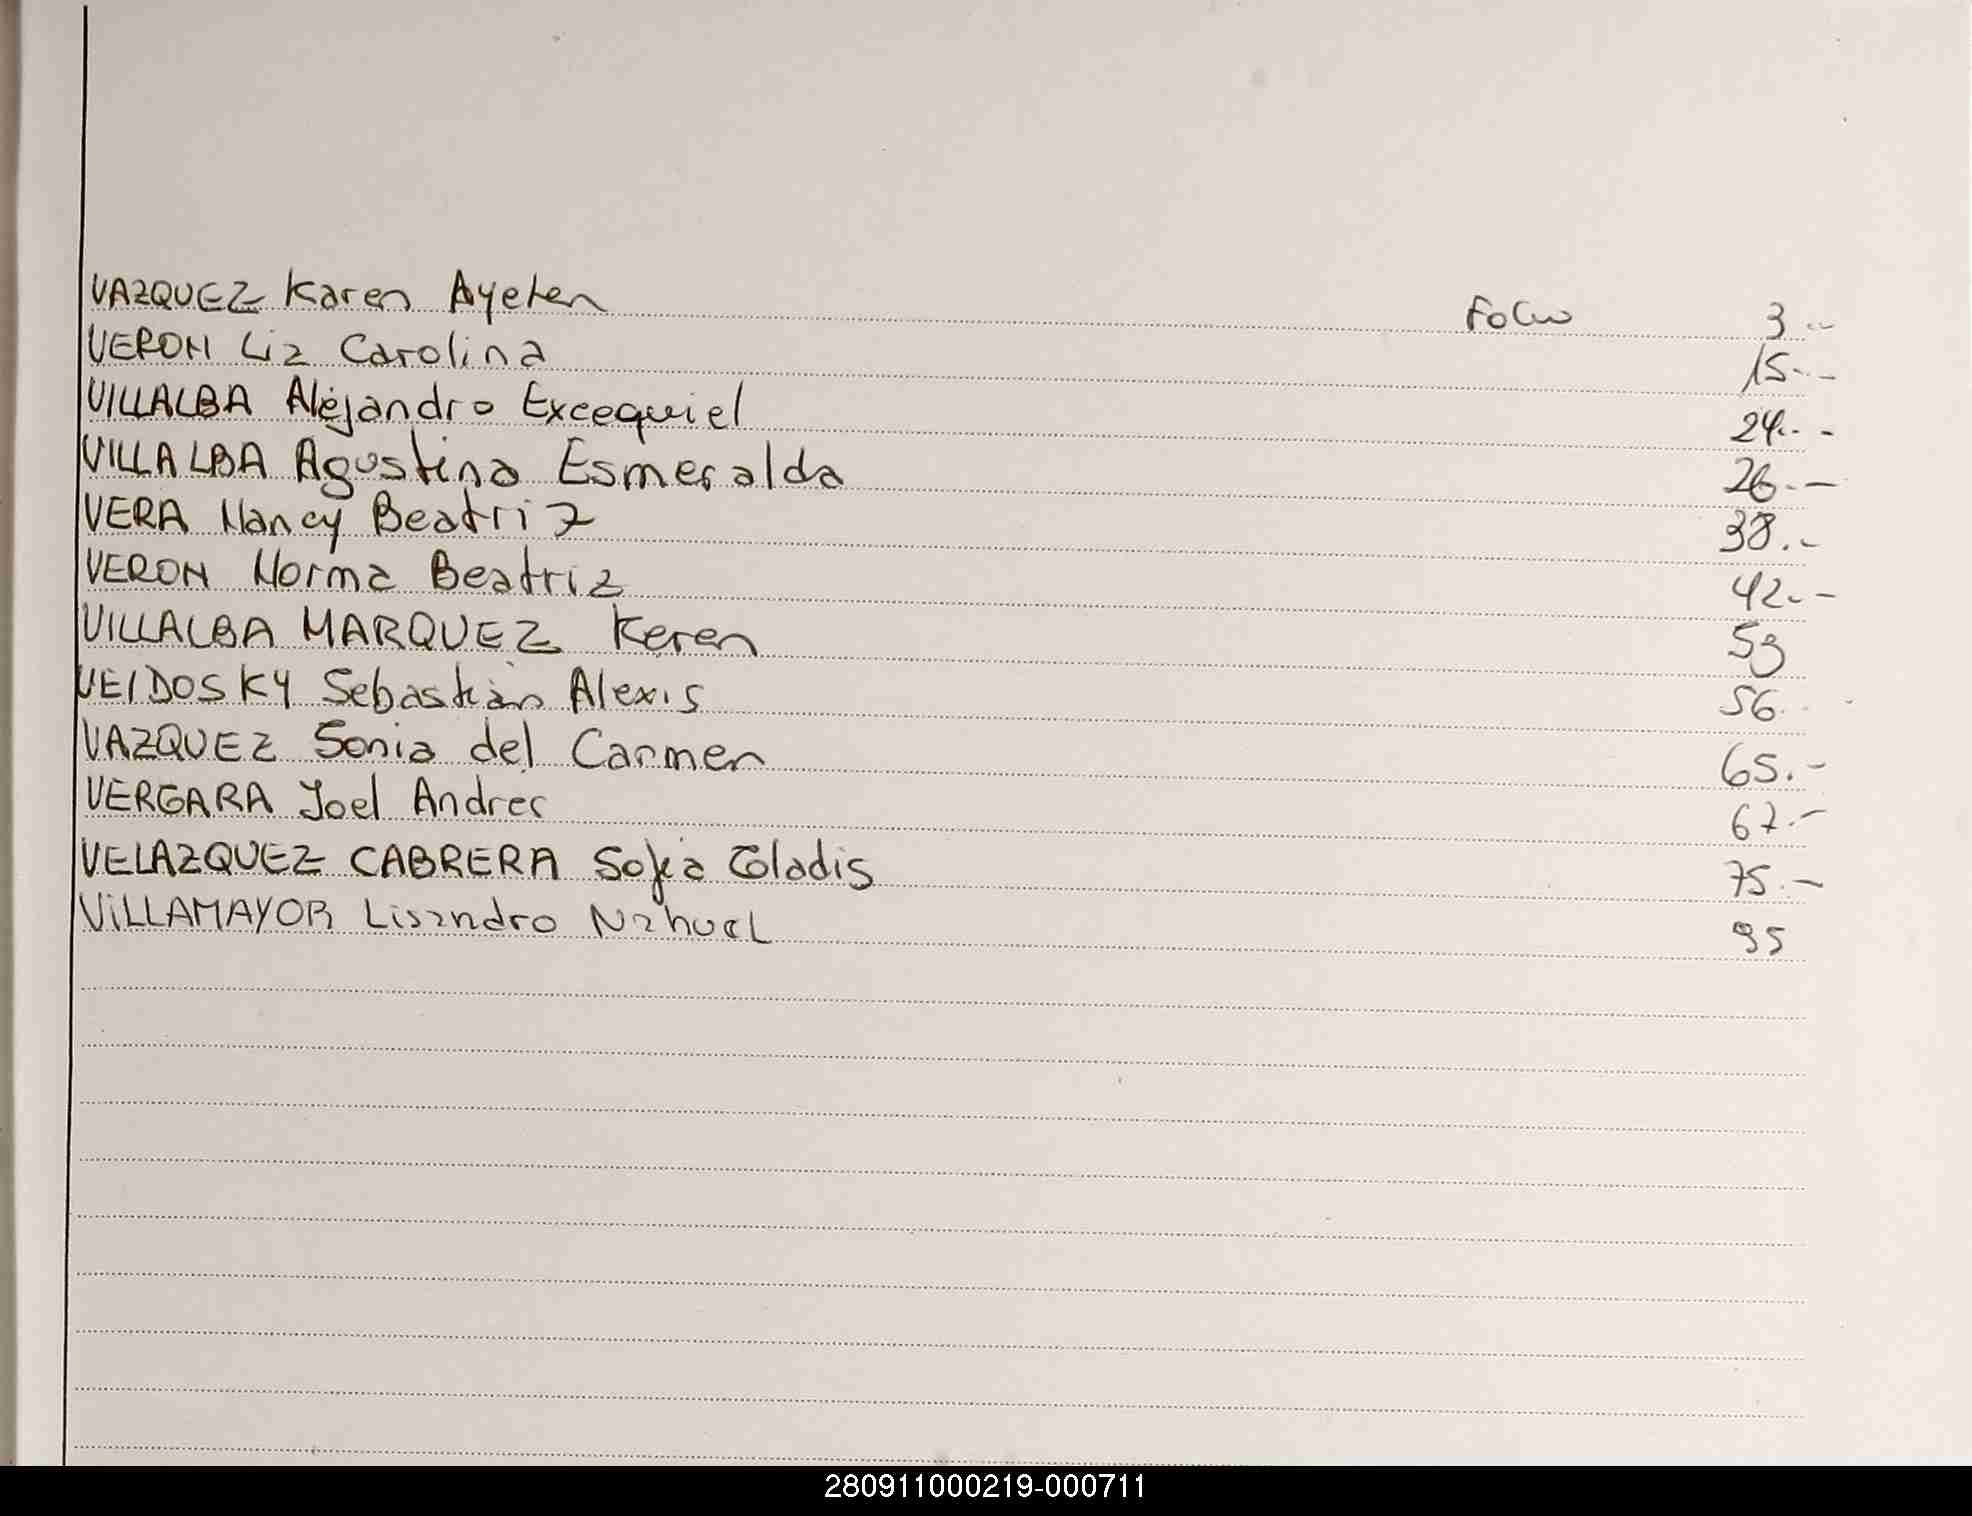 VAZQUEZ Karen Ayelen Folio 3.-
VERON Liz Carolina 15.-
VILLALBA Alejandro Excequiel 24.-
VILLALBA Agustina Esmeralda 26.-
VERA Nancy Beatriz 38.-
VERON Norma Beatriz 42.-
VILLALBA MARQUEZ Keren 53
VEIDOSKY Sebastián Alexis 56.
VAZQUEZ Sonia del Carmen 65.-
VERGARA Joel Andres 67.-
VELAZQUEZ CABRERA Sofia Gladis 75.-
VILLAMAYOR Lisandro Nahuel 95
280911000219-000711